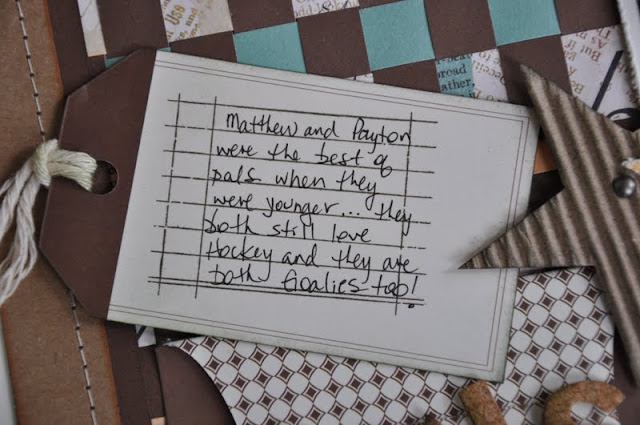 Use
broad
ather.
But if
Matthew and Payton
were the best of
pals when they
were younger... they
both still love
Hockey and they are
both Goalies too!